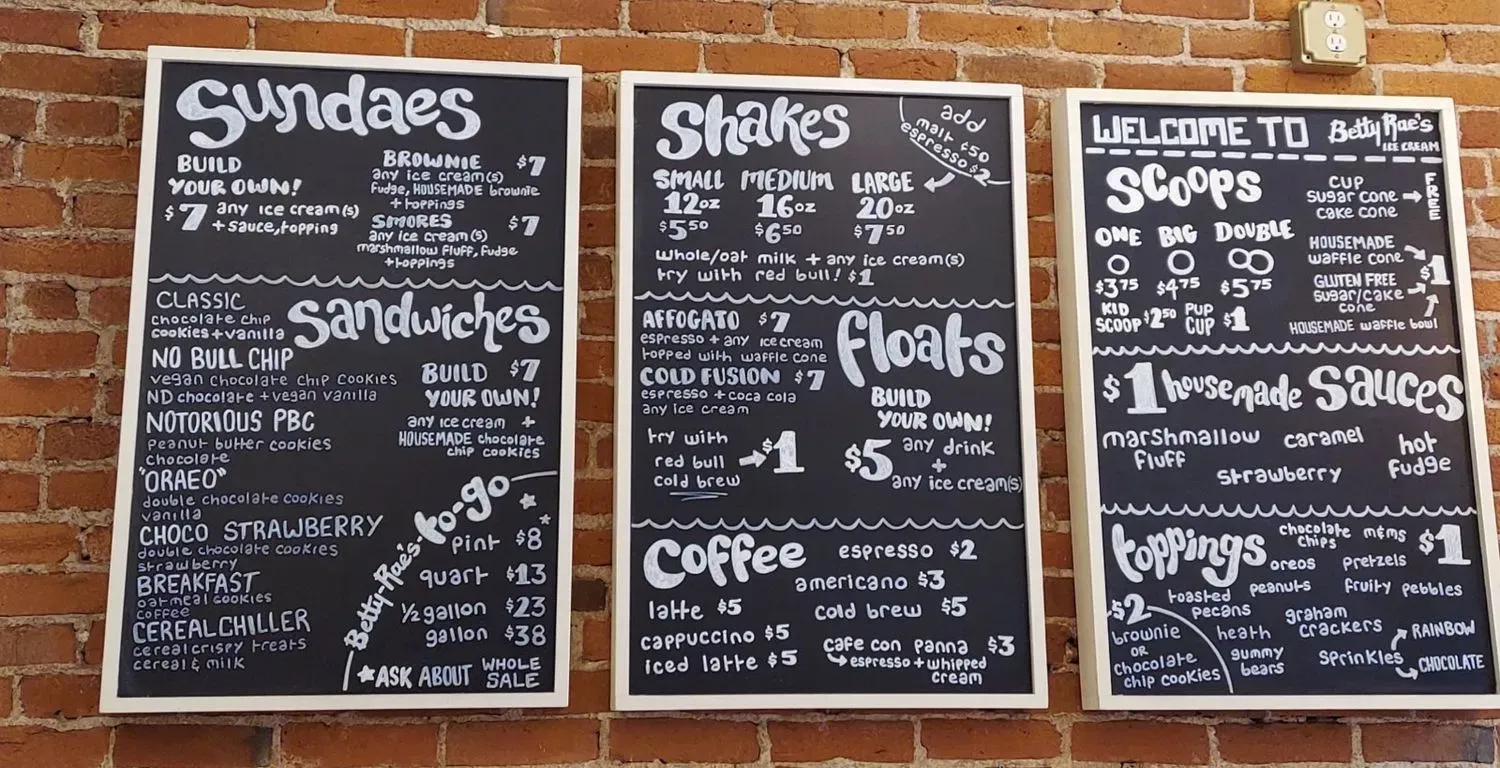 Sundaes
BUILD
YOUR OWN!
$7 any ice cream(s)
+ sauce, topping
BROWNIE $7
any ice cream(s)
Fudge, HOUSEMADE brownie
+ toppings
SMORES $7
any ice cream(s)
marshmallow fluff, fudge
+ toppings
Sandwiches
CLASSIC
chocolate chip
cookies + vanilla
NO BULL CHIP
vegan chocolate chip cookies
ND chocolate + vegan vanilla
NOTORIOUS PBC
peanut butter cookies
chocolate
"ORAEO"
double chocolate cookies
vanilla
CHOCO STRAWBERRY
double chocolate cookies
strawberry
BREAKFAST
oatmeal cookies
coffee
CEREAL CHILLER
cereal crispy treats
cereal & milk
BUILD $7
YOUR OWN!
any ice cream +
HOUSEMADE chocolate
chip cookies
Betty Rae's to-go
pint $8
quart $13
1/2 gallon $23
gallon $38
★ASK ABOUT WHOLE
SALE
Shakes
add
malt $50
espresso $2
SMALL MEDIUM LARGE
12oz 16oz 20oz
$5 50 $6 50 $7 50
whole/oat milk + any ice cream(s)
try with red bull! $1
floats
AFFOGATO $7
espresso + any ice cream
topped with waffle cone
COLD FUSION $7
espresso + coca cola
any ice cream
try with
red bull → $1
cold brew
BUILD
YOUR OWN!
$5 any drink
+
any ice cream(s)
Coffee
espresso $2
americano $3
latte $5
cold brew $5
cappuccino $5
cafe con panna $3
espresso + whipped
cream
iced latte $5
WELCOME TO Betty Rae's
ICE CREAM
Scoops
CUP
sugar cone → FREE
cake cone
ONE BIG DOUBLE
$3 75 $4 75 $5 75
KID
SCOOP $2 50
PUP
CUP $1
HOUSEMADE
waffle cone
$1
GLUTEN FREE
sugar/cake
cone
HOUSEMADE waffle bowl
$1 housemade Sauces
marshmallow
fluff
caramel
hot
fudge
strawberry
toppings
$1
chocolate
chips
m&ms
oreos
pretzels
toasted
pecans
peanuts
fruity pebbles
$2
brownie
OR
chocolate
chip cookies
heath
graham
crackers
gummy
bears
sprinkles
RAINBOW
CHOCOLATE